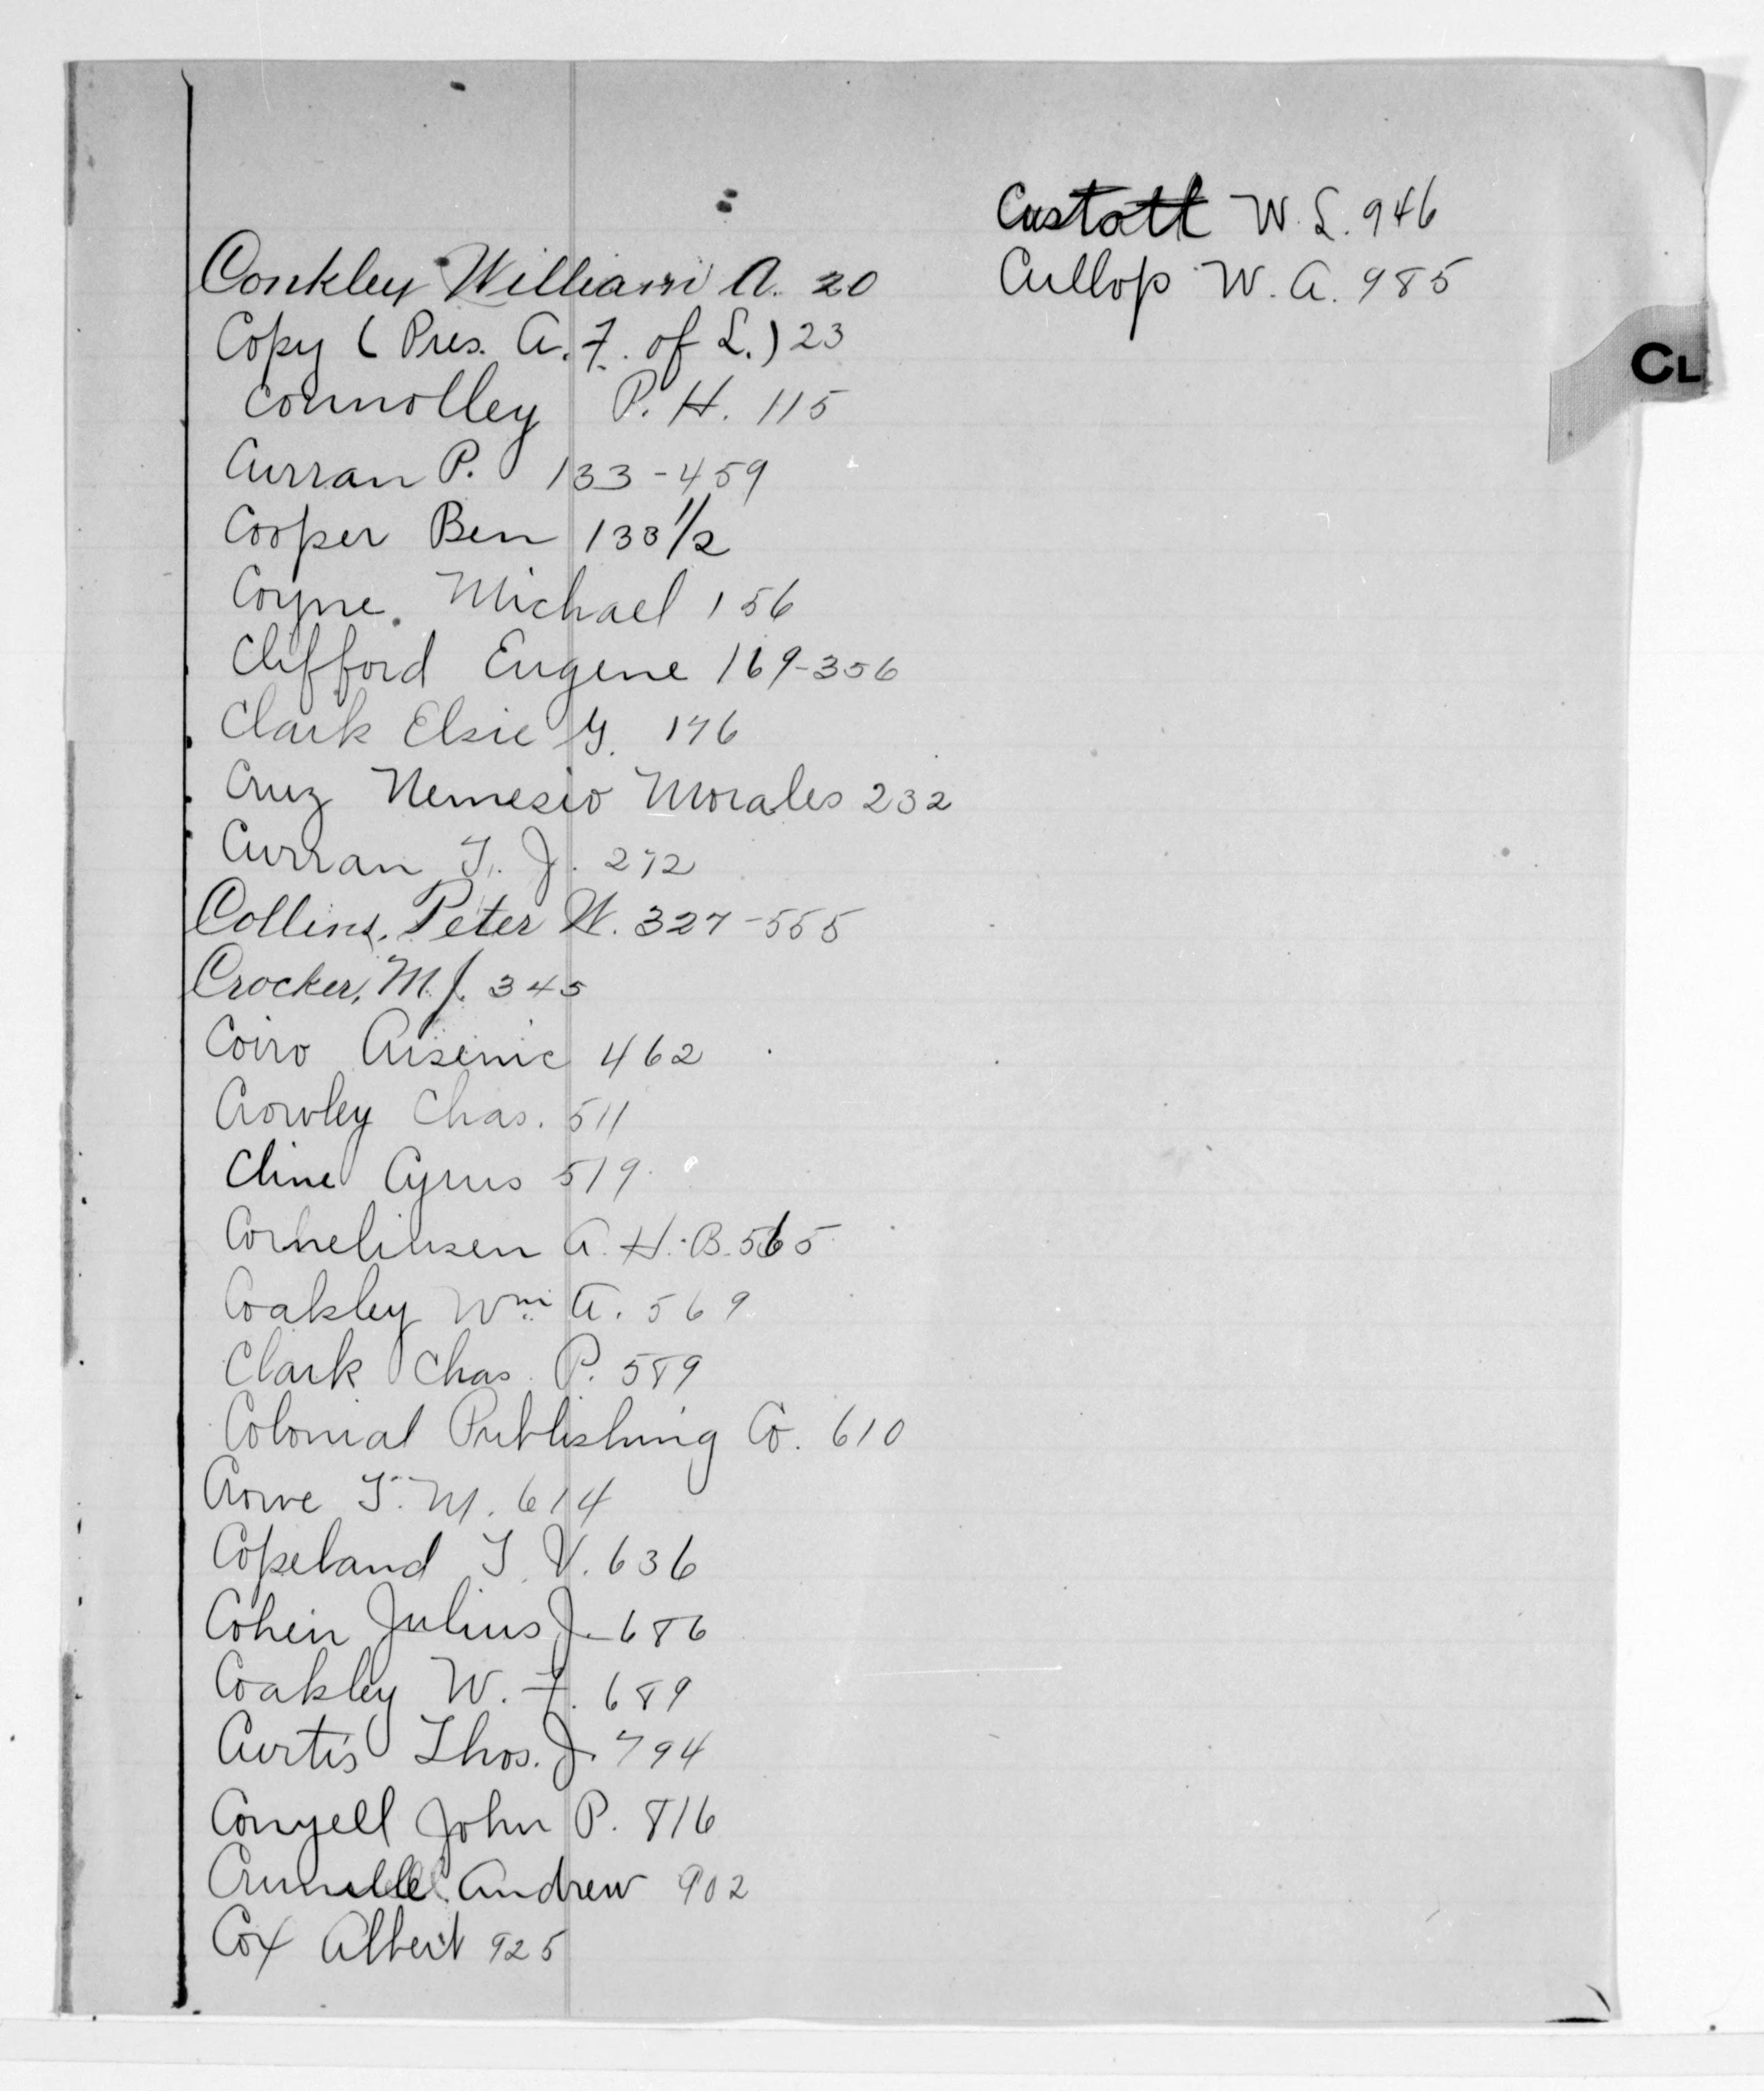 Conkley William A. 20
Copy (Pres. A. F. of L.) 23
Connolley P. H. 115
Curran P. 133-459
Cooper Ben 133 1/2
Coyne. Michael 156
Clifford Eugene 169-356
Clark Elsie Y. 176
Cruz Nemesio Morales 232
Curran T. J. 272
Collins, Peter W. 327-555
Crocker, M. J. 345
Coiro Arsenic 462
Crowley Chas. 511
Cline Cyrus 519
Corneliusen A. H. B. 565
Coakley Wm A. 569
Clark Chas. P. 589
Colonial Publishing Co. 610
Crowe T. M. 614
Copeland T. V. 636
Cohen Julius J. 686
Coakley W. F. 689
Curtis Thos. J. 794
Conyell John P. 816
Andrew 902
Cox Albert 925
Custatt W. L. 946
Cullop W. A. 985
CL